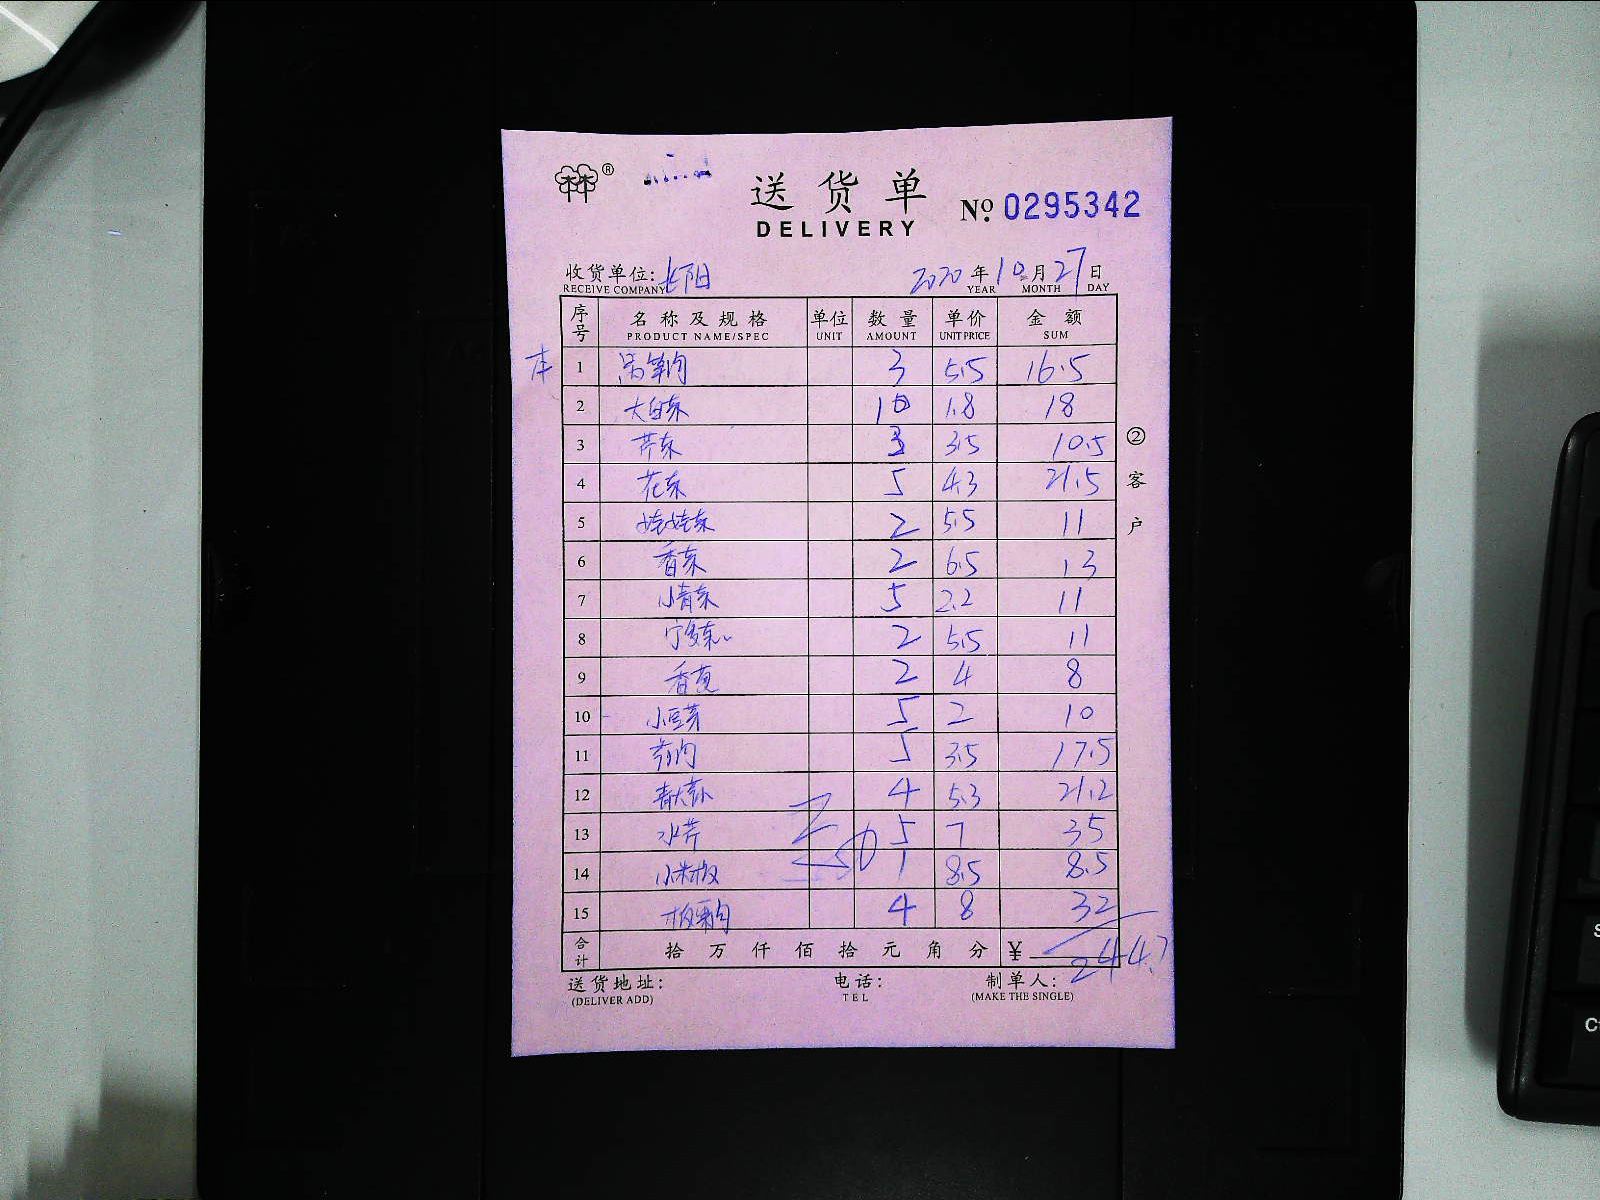 林®
送货单 No. 0295342
DELIVERY
收货单位: 长阳 2020年10月27日
RECEIVE COMPANY YEAR MONTH DAY
序号 名称及规格 单位 数量 单价 金额
PRODUCT NAME/SPEC UNIT AMOUNT UNIT PRICE SUM
1 3 5.5 16.5
2 大白菜 10 1.8 18
3 芹菜 3 3.5 10.5
4 花菜 5 4.3 21.5
5 娃娃菜 2 5.5 11
6 香菜 2 6.5 13
7 小青菜 5 2.2 11
8 2 5.5 11
9 香葱 2 4 8
10 小豆芽 5 2 10
11 5 3.5 17.5
12 4 5.3 21.2
13 水芹 5 7 35
14 小米椒 1 8.5 8.5
15 4 8 32
合计 拾万仟佰拾元角分 ¥ 244.7
② 客户
送货地址: 电话: 制单人:
(DELIVER ADD) TEL (MAKE THE SINGLE)